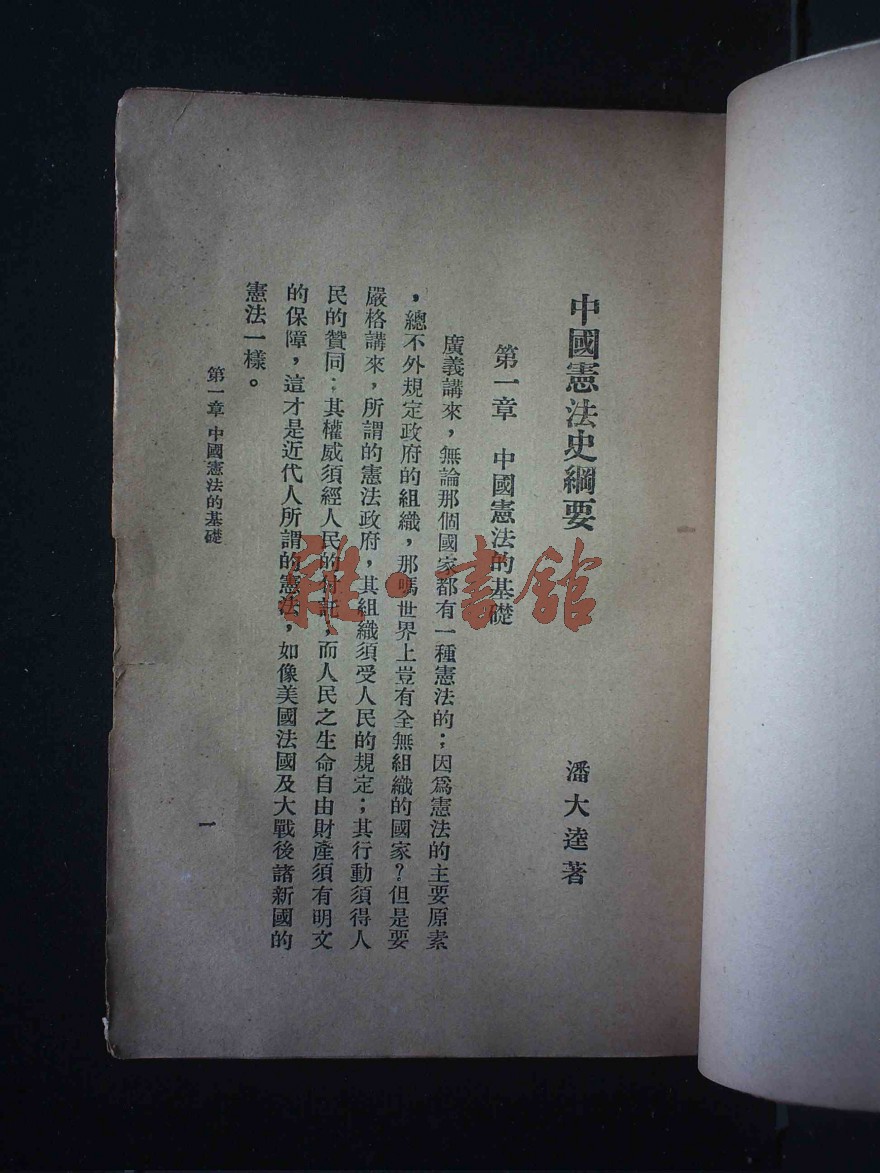 中國憲法史綱要
潘大逵著
第一章　中國憲法的基礎
廣義講來，無論那個國家都有一種憲法的；因爲憲法的主要原素
，總不外規定政府的組織，那嗎世界上豈有全無組織的國家？但是要
嚴格講來，所謂的憲法政府，其組織須受人民的規定；其行動須得人
民的贊同；其權威須經人民的付託，而人民之生命自由財產須有明文
的保障，這才是近代人所謂的憲法，如像美國法國及大戰後諸新國的
憲法一樣。
第一章 中國憲法的基礎
一
雜·書館